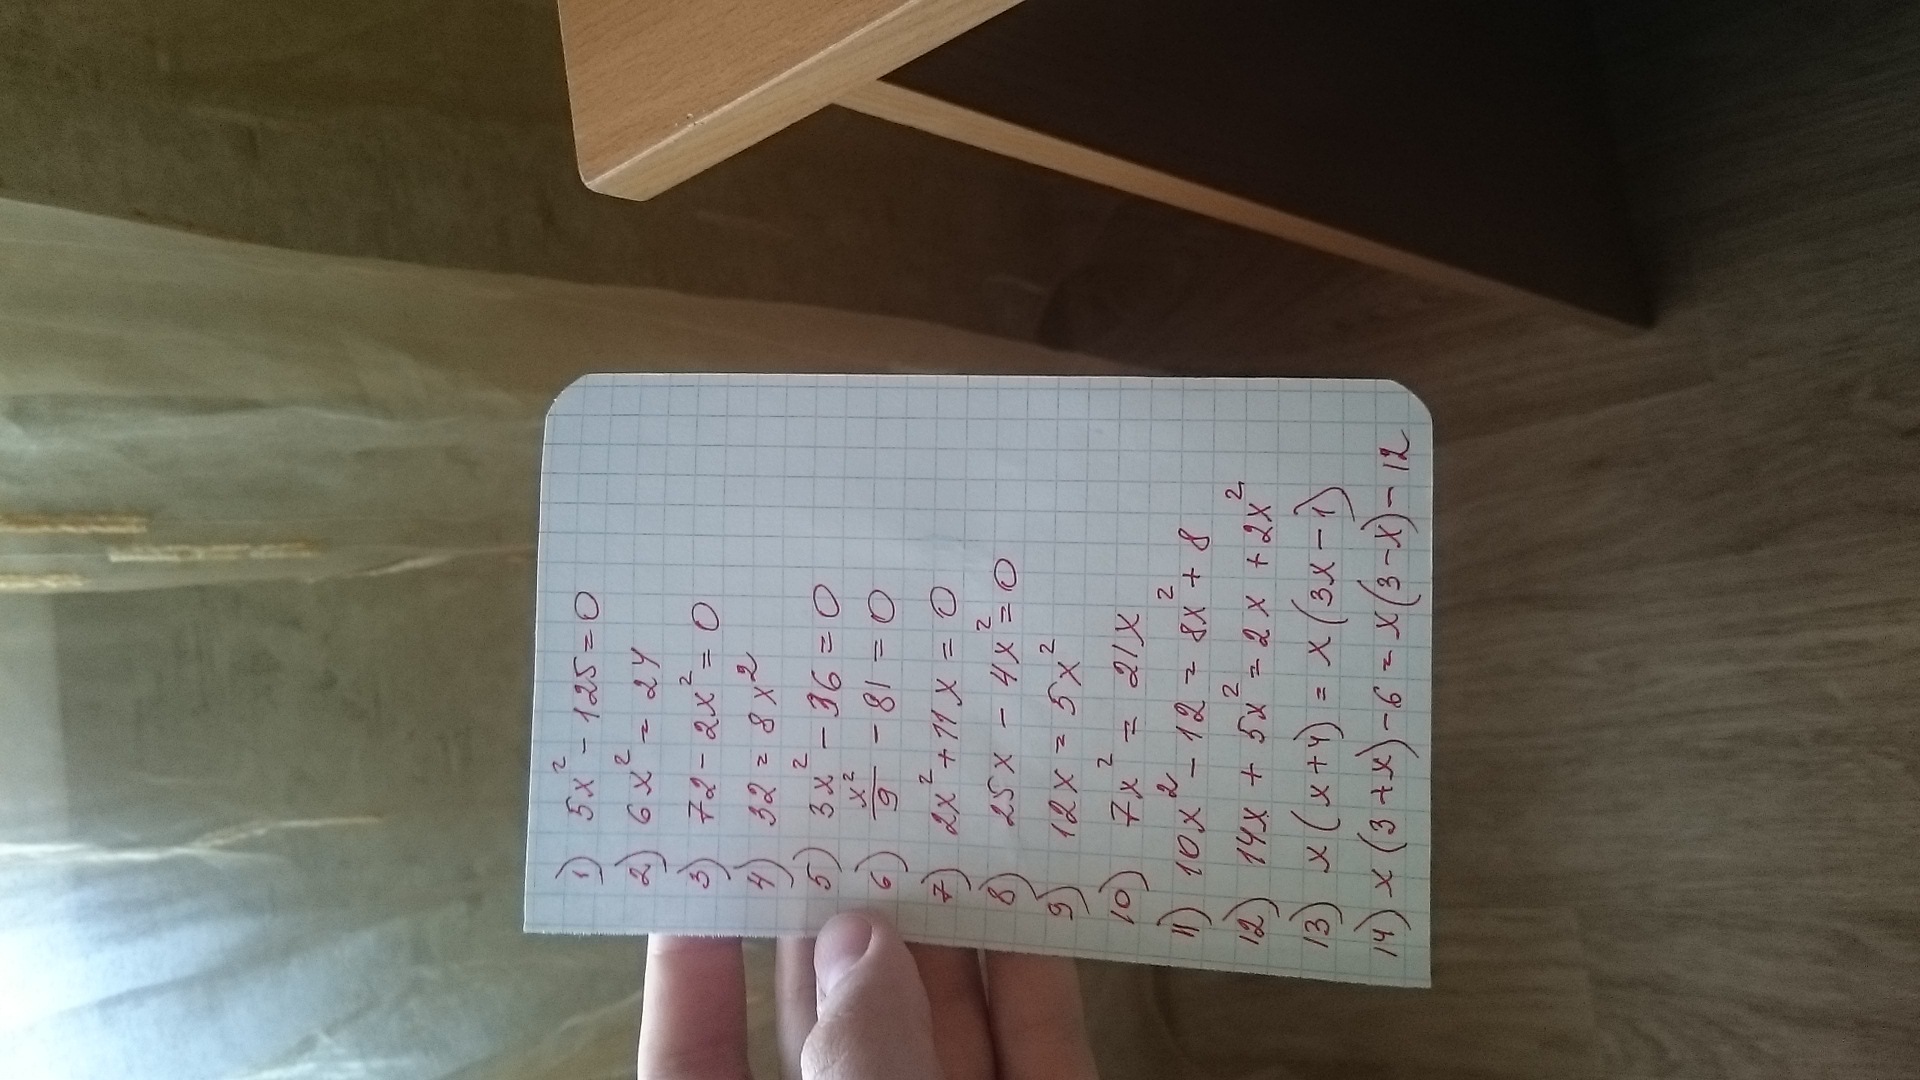 1) 5x² - 125 = 0
2) 6x² = 24
3) 72 - 2x² = 0
4) 32 = 8x²
5) 3x² - 36 = 0
6) x²/9 - 81 = 0
7) 2x² + 11x = 0
8) 25x - 4x² = 0
9) 12x = 5x²
10) 7x² = 21x
11) 10x² - 12 = 8x² + 8
12) 14x + 5x² = 2x + 2x²
13) x(x+4) = x(3x-1)
14) x(3+x) - 6 = x(3-x) - 12